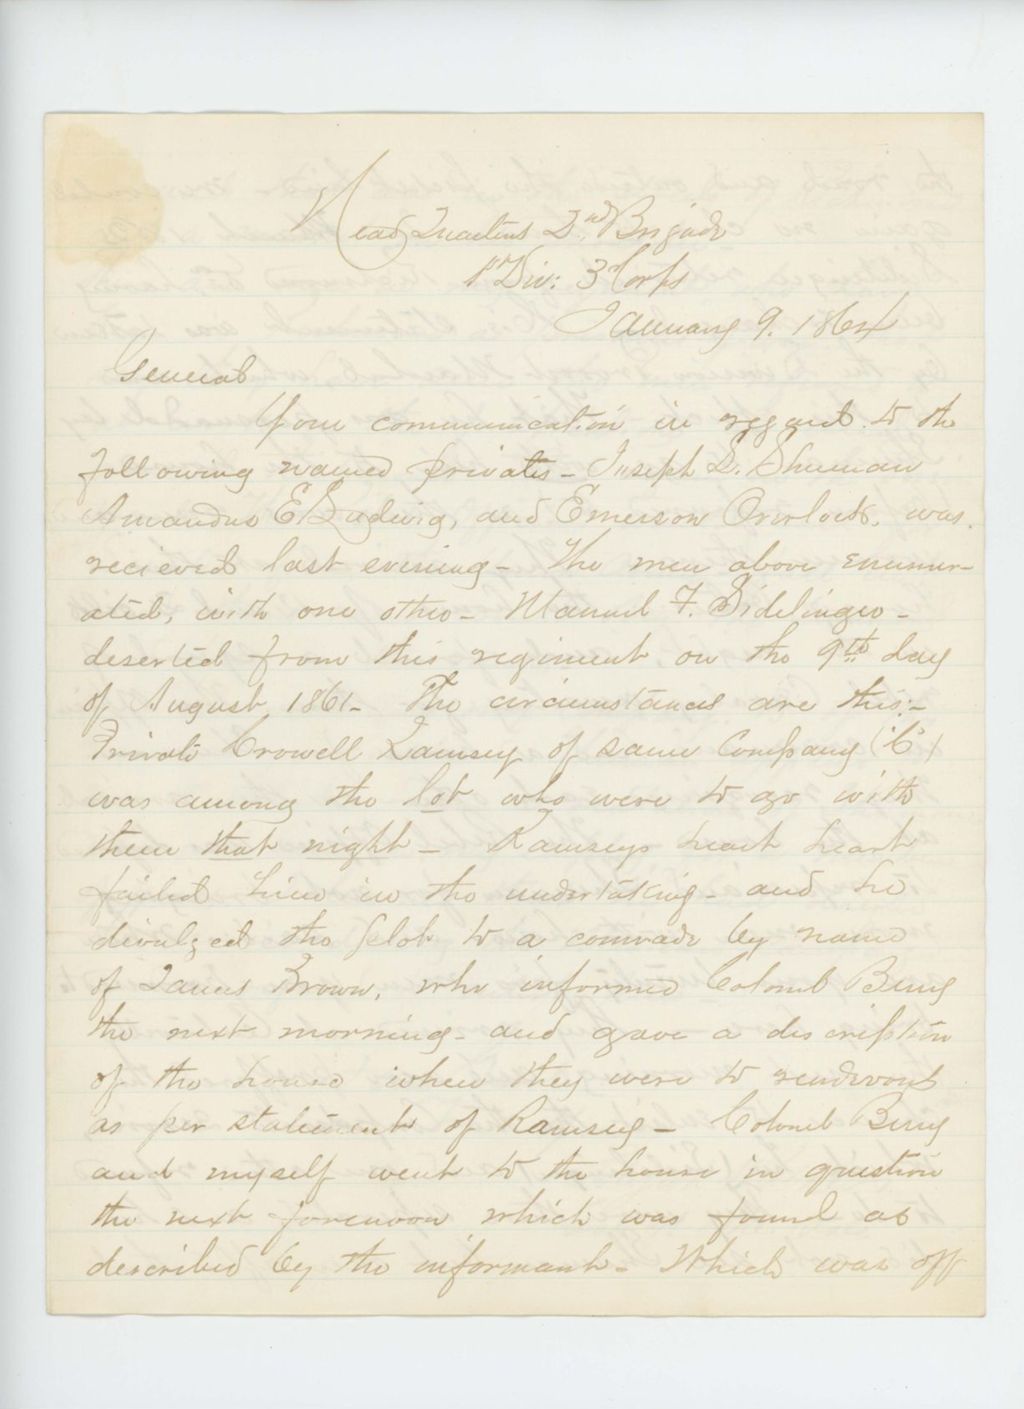 Head Quarters 2nd Brigade
1st Div: 3d Corps
January 9. 1864
General
Your communication in regard to the
following named privates - Joseph D. Shuman
Amandus E Ludwig, and Emerson Overlock, was
recieved last evening - The men above enumer-
ated, with one other - Manuel F. Sidelinger -
deserted from this regiment on the 9th day
of August 1861 - The circumstances are this:-
Private Crowell Ramsey of same Company ("C")
was among the lot who were to go with
them that night - Ramseys heart heart
failed him in the undertaking - and he
divulged the plot to a comrade by name
of James Brown, who informed Colonel Berry
the next morning - and gave a discription
of the house where they were to rendevous
as per statement of Ramsey - Colonel Berry
and myself went to the house in question
the next forenoon which was found as
described by the informant - Which was off